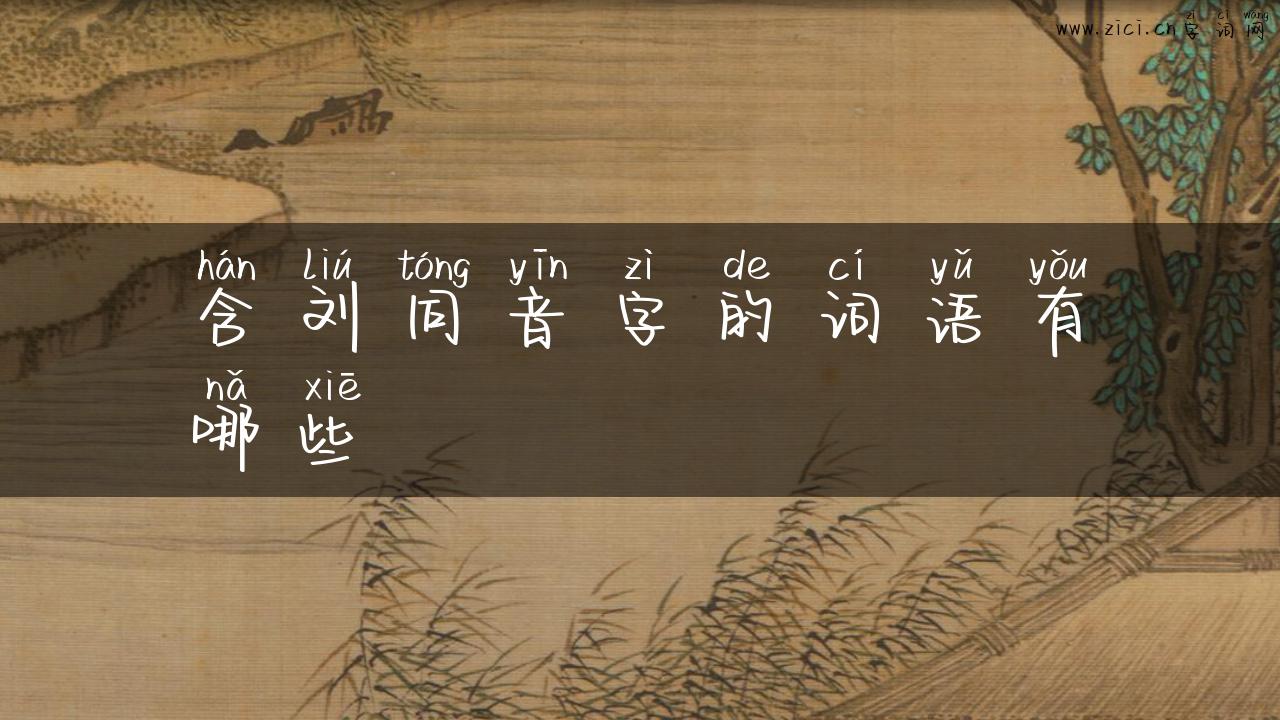 zì cí wǎng
www.zici.cn字词网
hán liú tóng yīn zì de cí yǔ yǒu
含刘同音字的词语有
nǎ xiē
哪些